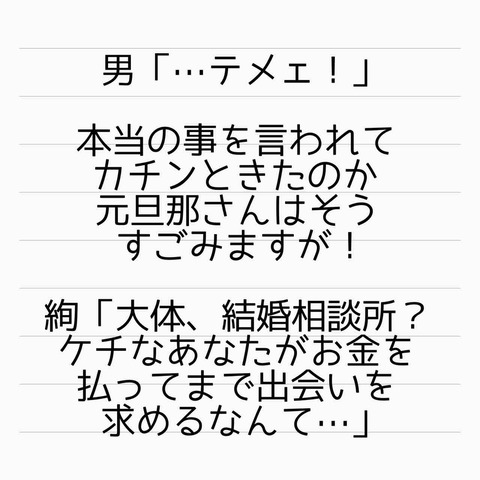 男「…テメェ！」
本当の事を言われて
カチンときたのか
元旦那さんはそう
すごみますが！
絢「大体、結婚相談所？
ケチなあなたがお金を
払ってまで出会いを
求めるなんて…」